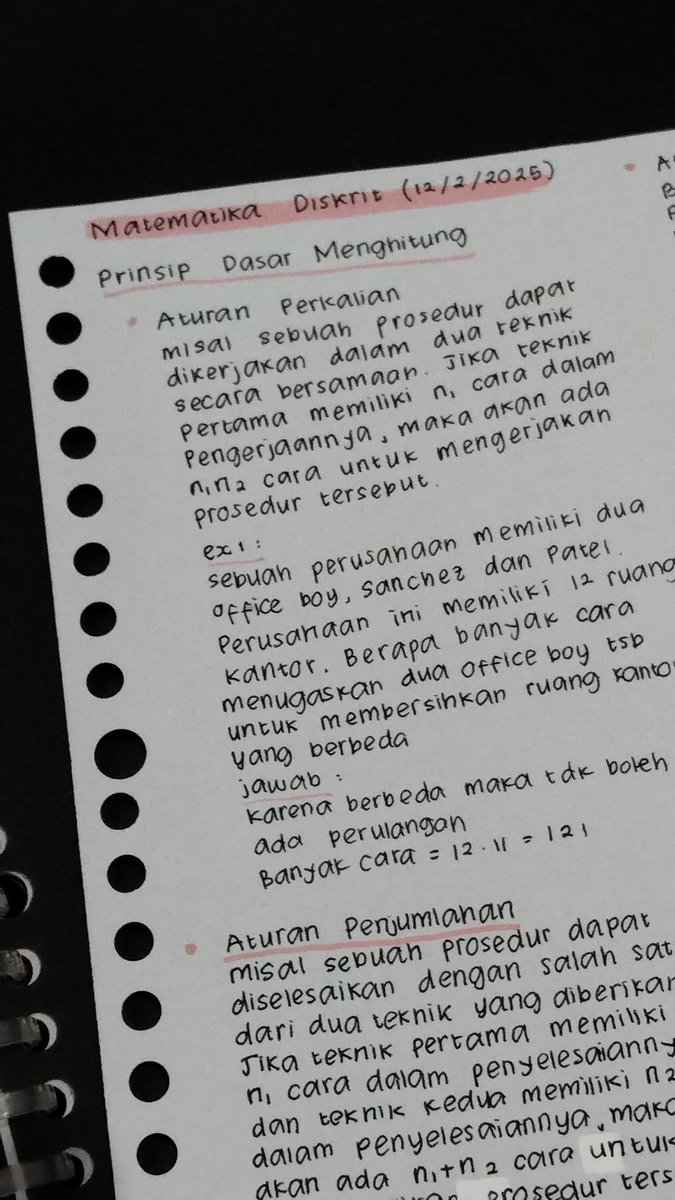 Matematika Diskrit (12/2/2025)
Prinsip Dasar Menghitung
• Aturan Perkalian
misal sebuah prosedur dapat
dikerjakan dalam dua teknik
secara bersamaan. Jika teknik
pertama memiliki n₁ cara dalam
pengerjaannya, maka akan ada
n₁n₂ cara untuk mengerjakan
prosedur tersebut.
ex 1 :
sebuah perusahaan memiliki dua
office boy, sanchez dan Patel.
Perusahaan ini memiliki 12 ruang
kantor. Berapa banyak cara
menugaskan dua office boy tsb
untuk membersihkan ruang kanto
yang berbeda
jawab :
karena berbeda maka tdk boleh
ada perulangan
Banyak cara = 12 . 11 = 121
• Aturan Penjumlahan
misal sebuah prosedur dapat
diselesaikan dengan salah sat
dari dua teknik yang diberikan
Jika teknik pertama memiliki
n₁ cara dalam penyelesaianny
dan teknik kedua memiliki n₂
dalam penyelesaiannya, maka
akan ada n₁+n₂ cara untuk
prosedur ters